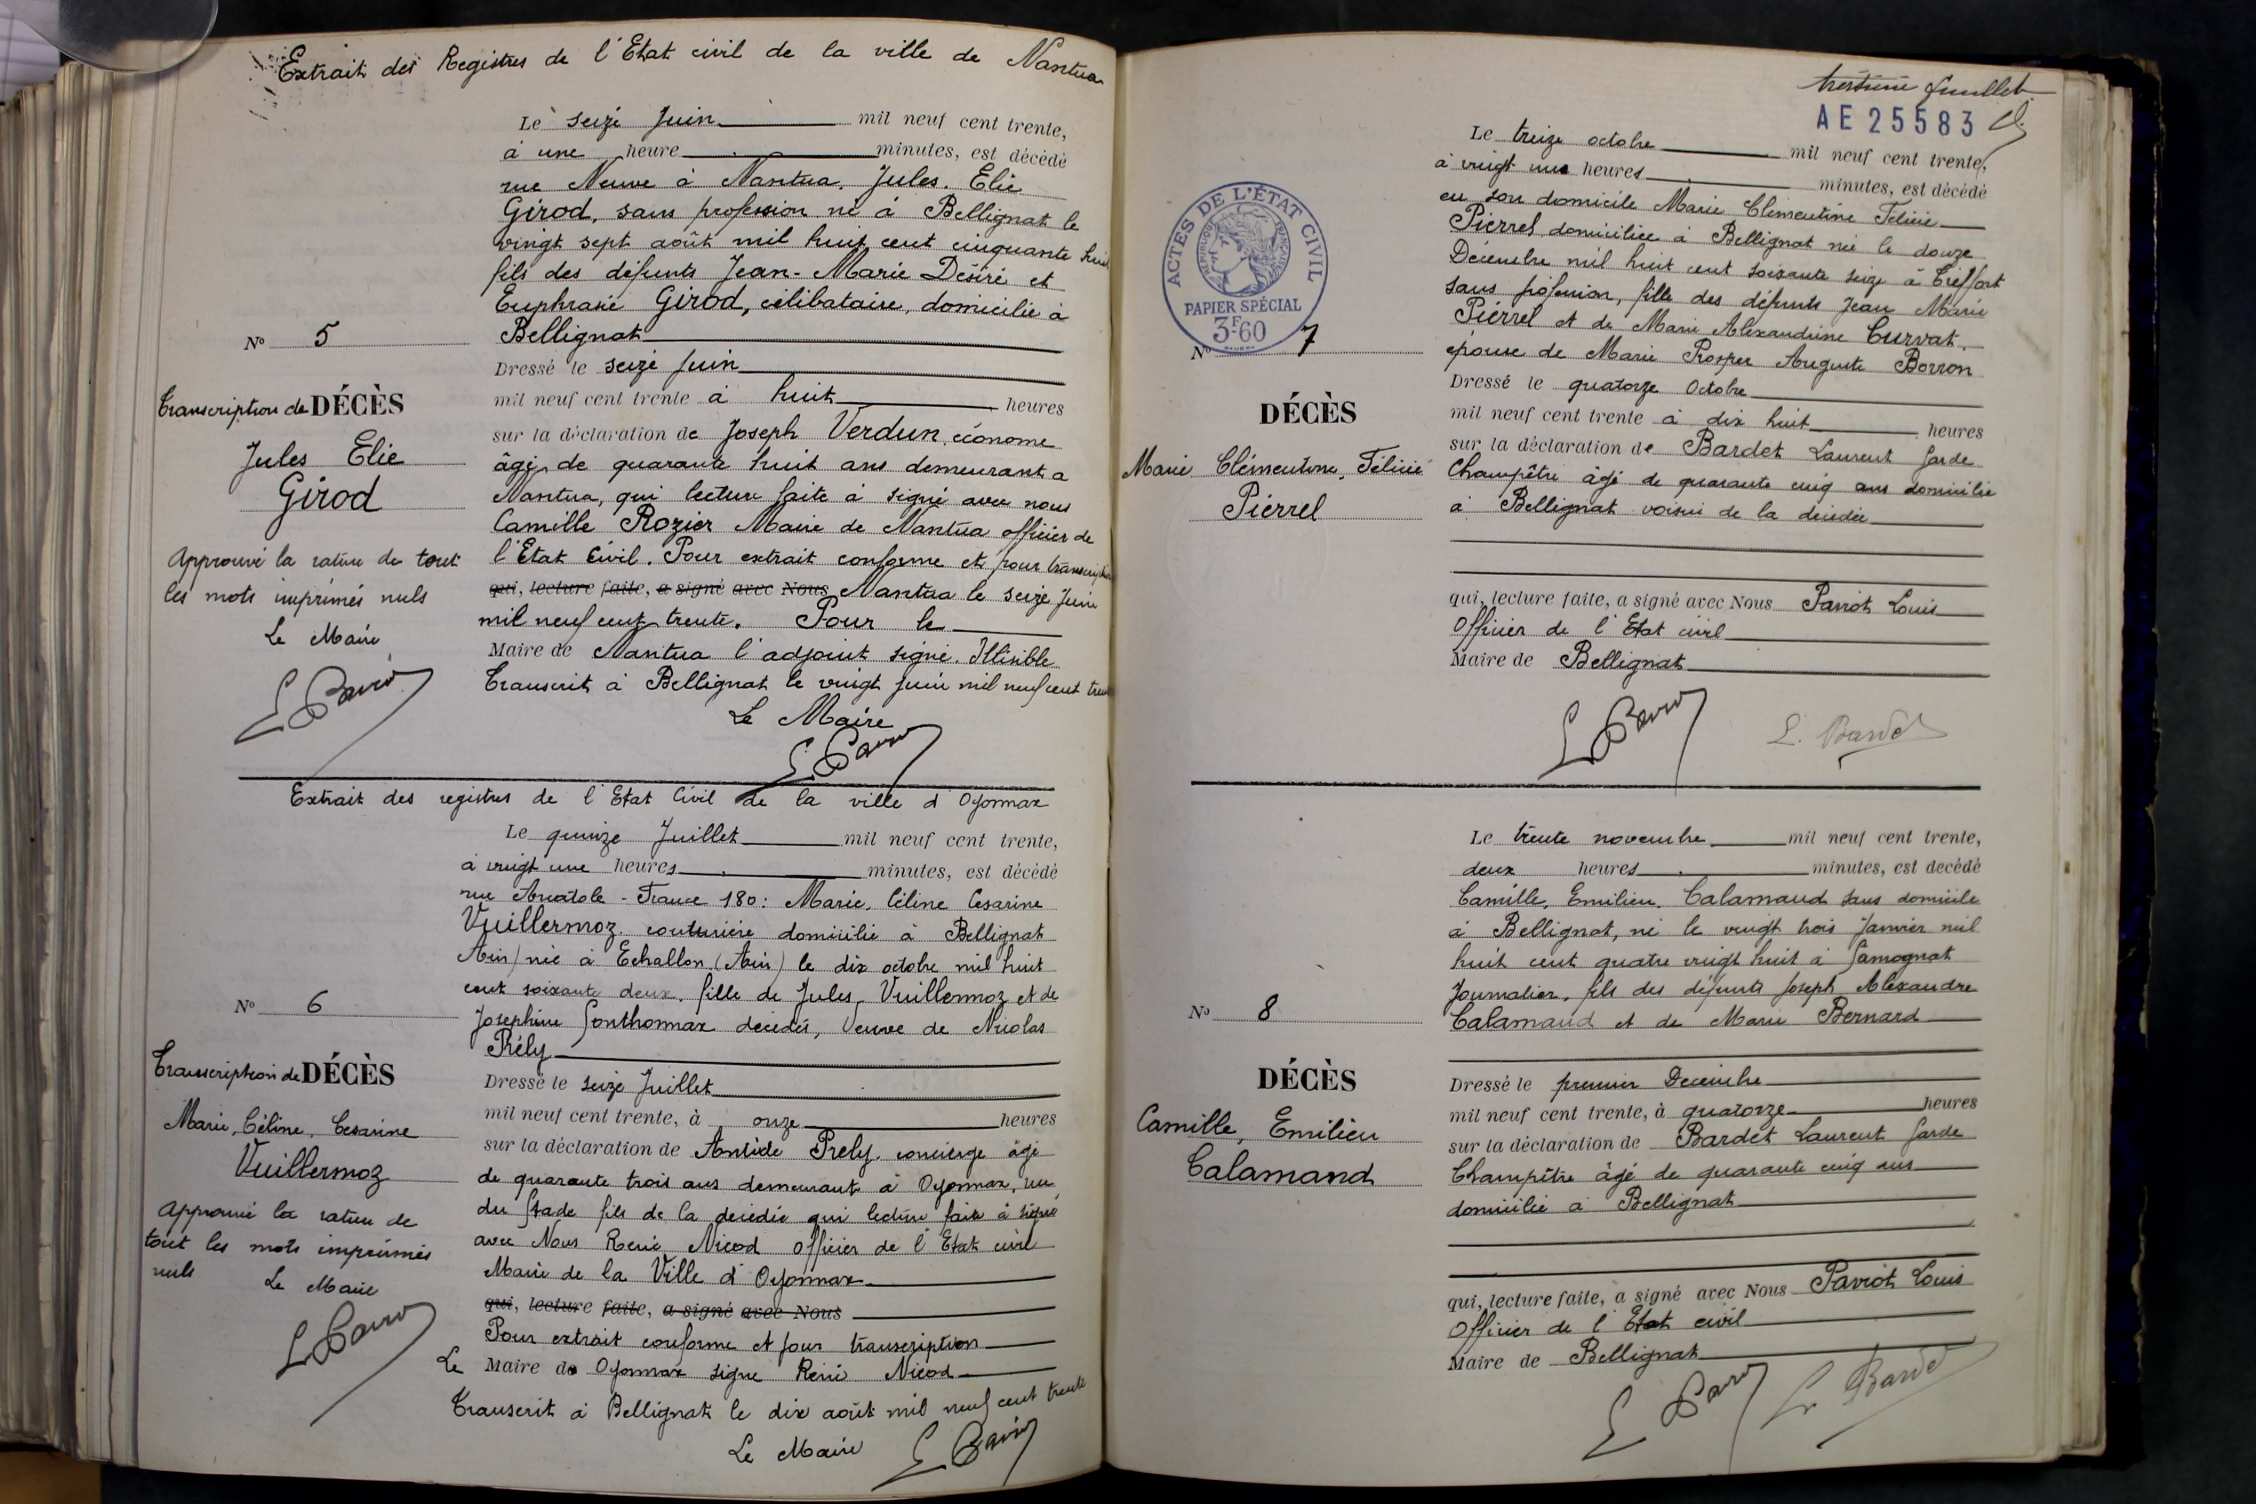 Extrait des Registres de l'Etat civil de la ville de Nantua
Le seize Juin mil neuf cent trente,
à une heure minutes, est décédé
rue Neuve à Nantua, Jules. Elie
Girod, sans profession né à Bellignat le
vingt sept août mil huit cent cinquante huit
fils des défunts Jean-Marie Désiré et
Euphrasie Girod, célibataire, domicilié à
Bellignat
Dressé le seize Juin
mil neuf cent trente à huit heures
sur la déclaration de Joseph Verdun, économe
âgé de quarante huit ans demeurant a
Nantua, qui lecture faite à signé avec nous
Camille Rozier Maire de Nantua officier de
l'Etat Civil. Pour extrait conforme et pour transcription
qui, lecture faite, a signé avec Nous Nantua le seize Juin
mil neuf cent trente. Pour le
Maire de Nantua l'adjoint signé. Illisible
Transcrit à Bellignat le vingt juin mil neuf cent trente
Le Maire
L. Paviot
N° 5
Transcription de DÉCÈS
Jules Elie
Girod
Approuvé la rature de tout
les mots imprimés nuls
Le Maire
L. Paviot
Extrait des registres de l'Etat Civil de la ville d'Oyonnax
Le quinze Juillet mil neuf cent trente,
à vingt une heures minutes, est décédé
rue Anatole-France 180: Marie, Céline Cesarine
Vuillermoz, couturière domicilié à Bellignat
Ain) née à Echallon (Ain) le dix octobre mil huit
cent soixante deux, fille de Jules Vuillermoz et de
Joséphine Gonthonnax décédés, Veuve de Nicolas
Prély
Dressé le seize Juillet
mil neuf cent trente, à onze heures
sur la déclaration de Antide Prely, concierge âgé
de quarante trois ans demeurant à Oyonnax, rue
du Stade fils de la décédée qui lecture faite à signé
avec Nous René Nicod officier de l'Etat civil
Maire de la Ville d'Oyonnax
qui, lecture faite, a signé avec Nous
Pour extrait conforme et pour transcription
Le Maire de Oyonnax signe René Nicod
Transcrit à Bellignat le dix août mil neuf cent trente
Le Maire L. Paviot
N° 6
Transcription de DÉCÈS
Marie, Céline, Cesarine
Vuillermoz
Approuvé la rature de
tout les mots imprimés
nuls Le Maire
L. Paviot
treizième feuillet
AE 25583
ACTES DE L'ÉTAT CIVIL
RÉPUBLIQUE FRANÇAISE
PAPIER SPÉCIAL
3F60
Le treize octobre mil neuf cent trente,
à vingt une heures minutes, est décédé
en son domicile Marie Clémentine Félicie
Pierrel domiciliée à Bellignat née le douze
Décembre mil huit cent soixante seize à Treffort
sans profession, fille des défunts Jean Marie
Pierrel et de Marie Alexandrine Curvat,
épouse de Marie Prosper Auguste Borron
Dressé le quatorze Octobre
mil neuf cent trente à dix huit heures
sur la déclaration de Bardet Laurent Garde
Champêtre âgé de quarante cinq ans domicilié
à Bellignat voisin de la décédée
qui, lecture faite, a signé avec Nous Paviot Louis
Officier de l'Etat civil
Maire de Bellignat
L. Paviot L. Bardet
N° 7
DÉCÈS
Marie Clémentine, Félicie
Pierrel
Le trente novembre mil neuf cent trente,
deux heures minutes, est décédé
Camille, Emilien, Calamand sans domicile
à Bellignat, né le vingt trois Janvier mil
huit cent quatre vingt huit à Samognat
Journalier, fils des défunts Joseph Alexandre
Calamand et de Marie Bernard
Dressé le premier Decembre
mil neuf cent trente, à quatorze heures
sur la déclaration de Bardet Laurent Garde
Champêtre âgé de quarante cinq ans
domicilié à Bellignat
qui, lecture faite, a signé avec Nous Paviot Louis
Officier de l'Etat civil
Maire de Bellignat
L. Paviot L. Bardet
N° 8
DÉCÈS
Camille, Emilien
Calamand